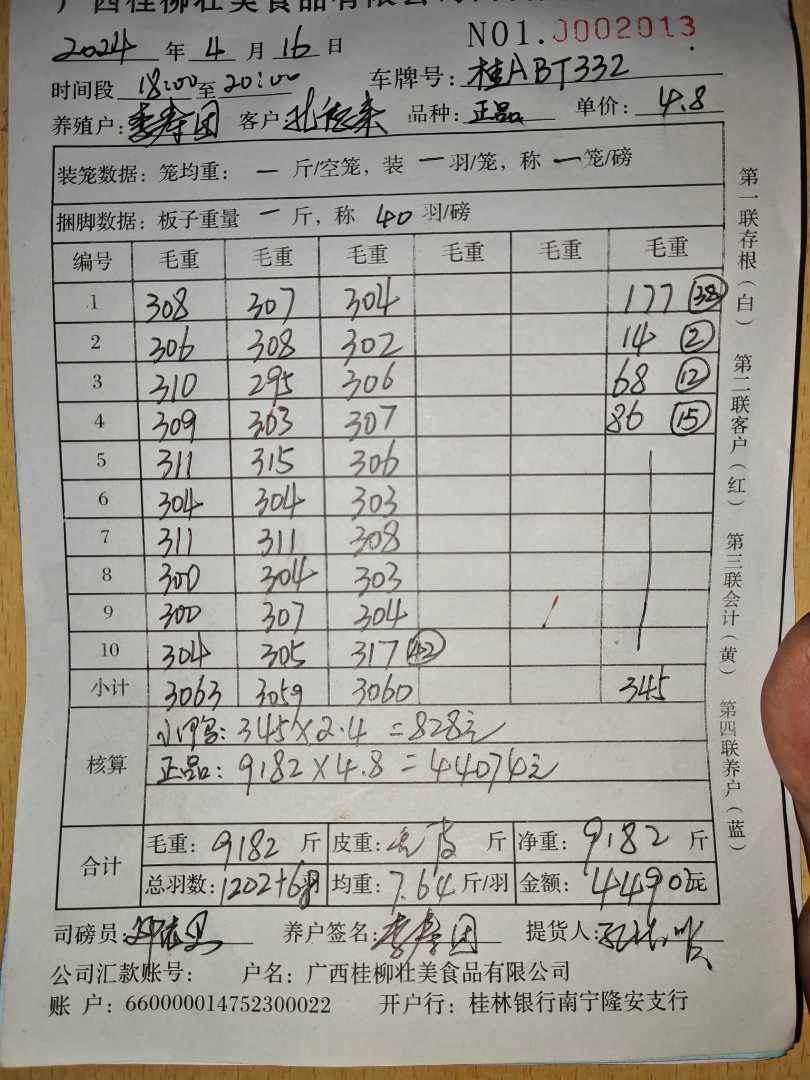 广西桂柳壮美食品有限公司
NO1.0002013
2024 年 4 月 16 日
时间段 18:00 至 20:00 车牌号: 桂ABT332
养殖户: 李寿团 客户 品种: 正品 单价: 4.8
装笼数据: 笼均重: 一 斤/空笼, 装 一 羽/笼, 称 一 笼/磅
捆脚数据: 板子重量 一 斤, 称 40 羽/磅
编号 毛重 毛重 毛重 毛重 毛重 毛重
1 308 307 304 177 38
2 306 308 302 14 2
3 310 295 306 68 12
4 309 303 307 86 15
5 311 315 306
6 304 304 303
7 311 311 308
8 300 304 303
9 300 307 304
10 304 305 317 42
小计 3063 3059 3060 345
核算
345×2.4=828元
正品: 9182×4.8=44074元
合计
毛重: 9182 斤 皮重: 斤 净重: 9182 斤
总羽数: 1202+67羽 均重: 7.64 斤/羽 金额: 44902元
司磅员: 养户签名: 李寿团 提货人:
公司汇款账号: 户名: 广西桂柳壮美食品有限公司
账 户: 660000014752300022 开户行: 桂林银行南宁隆安支行
第一联存根(白) 第二联客户(红) 第三联会计(黄) 第四联养户(蓝)